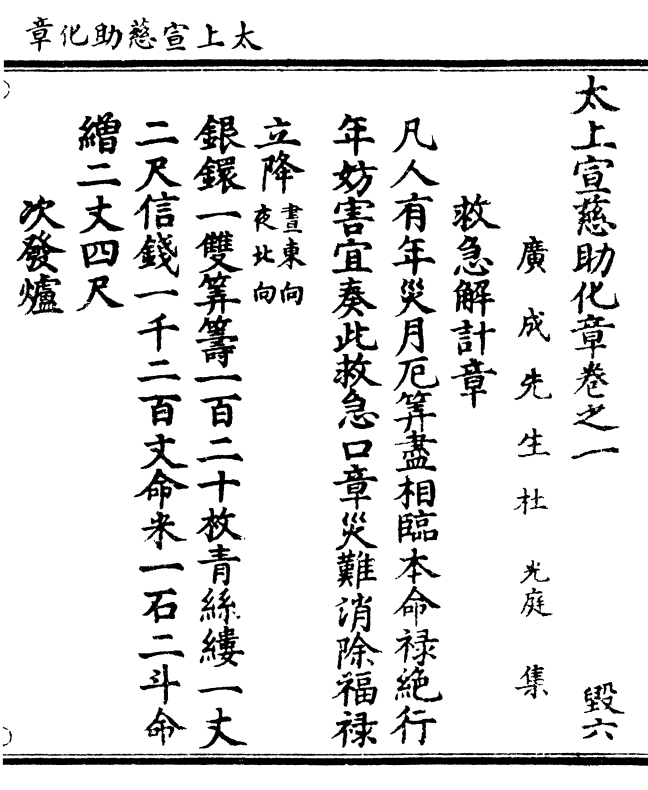 太上宣慈助化章
太上宣慈助化章卷之一 毀六
廣成先生杜光庭集
救急解計章
凡人有年災月厄筭盡相臨本命祿絕行
年妨害宜奏此救急口章災難消除福祿
立降晝東向夜北向
銀鐶一雙筭籌一百二十枚青絲縷一丈
二尺信錢一千二百文命米一石二斗命
繒二丈四尺
次發爐